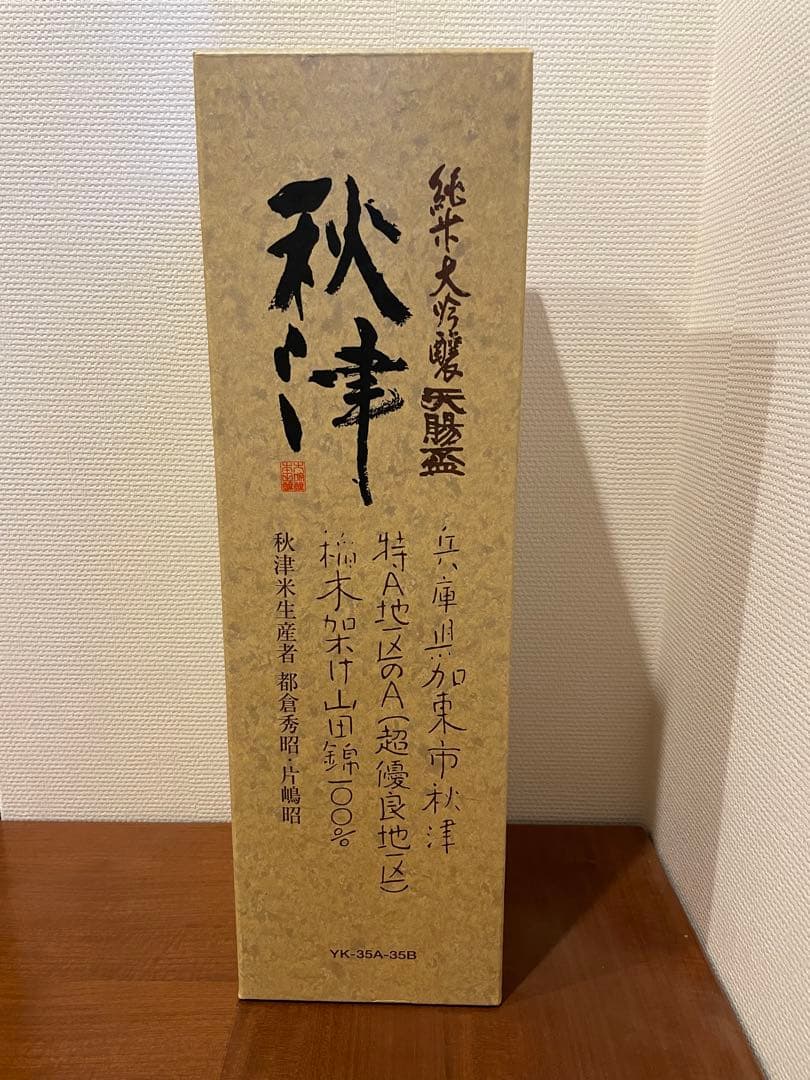 純米大吟醸 天賜盃
秋津
兵庫県加東市秋津
特A地区のA(超優良地区)
稲木架け山田錦一〇〇%
秋津米生産者 都倉秀昭・片嶋昭
YK-35A-35B